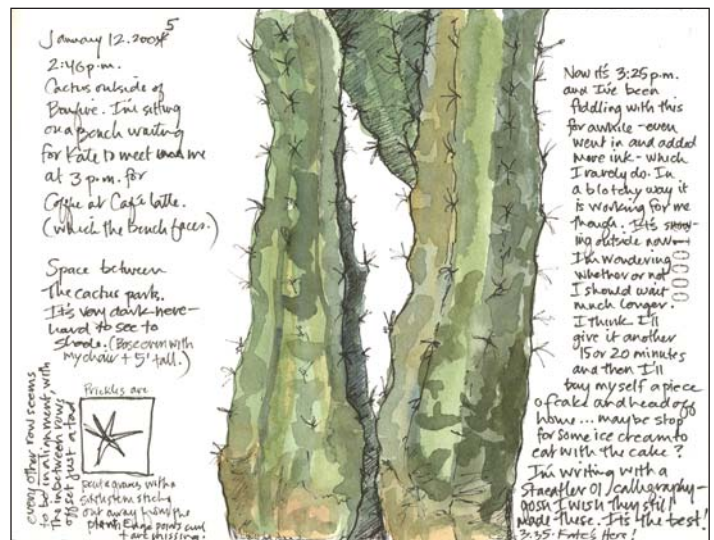 January 12. 2005
2:46 p.m.
Cactus outside of
Bonfire. I'm sitting
on a bench waiting
for Kate to meet me
at 3 p.m. for
Coffee at Cafe Latte.
(which the bench faces.)
Space between
the cactus parts.
It's very dark here-
hard to see to
shade. (Base even with
my chair + 5' tall.)
every other row seems
to be in alignment, with
the in between rows
offset just a tad
Prickles are
out away from the
plant. Edge points
+ are missing.
Now it's 3:25 p.m.
and I've been
fiddling with this
for awhile - even
went in and added
more ink - which
I rarely do. In
a blotchy way it
is working for me
though. It's snow-
ing outside now-
I'm wondering
whether or not
I should wait
much longer.
I think I'll
give it another
15 or 20 minutes
and then I'll
buy myself a piece
of cake and head off
home... maybe stop
for some ice cream to
eat with the cake?
I'm writing with a
Staedtler 01/calligraphy-
gosh I wish they still
made these. It's the best!
3:35. Kate's Here!